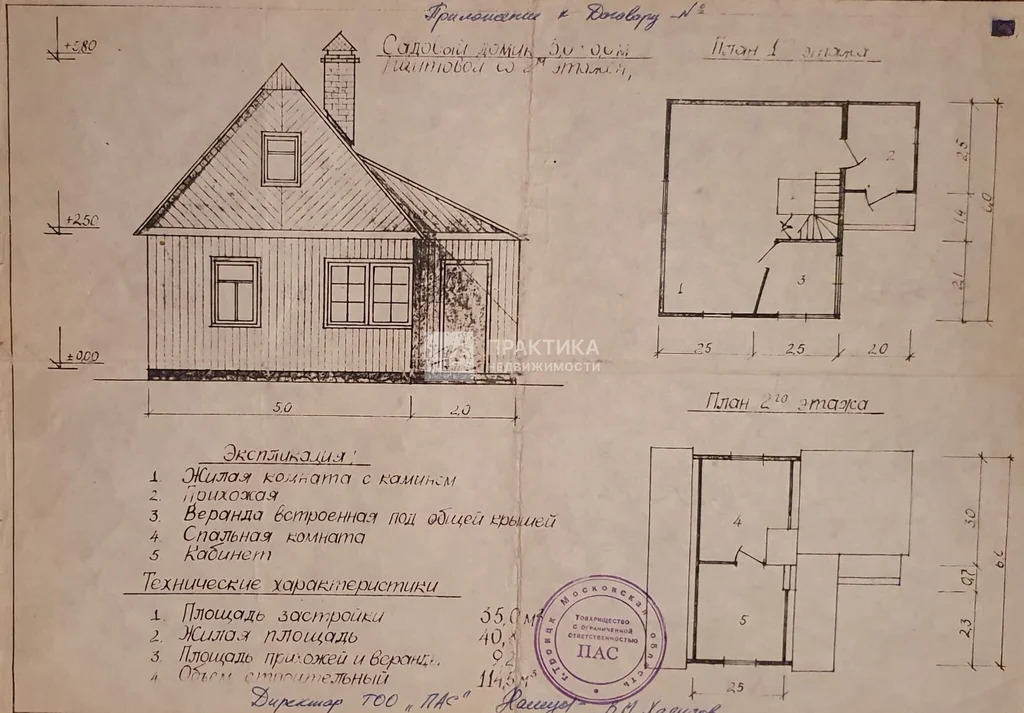 Приложение к Договору №
Садовый домик 5,0
щитовой со 2м этажом,
План 1 этажа
+5,80
+2,50
±0,00
5,0
2,0
1
2
3
2,5
1,4
2,1
6,0
2,5
2,5
2,0
ПРАКТИКА
НЕДВИЖИМОСТИ
План 2го этажа
4
5
3,0
0,7
2,3
2,5
Экспликация:
1. Жилая комната с камином
2. Прихожая
3. Веранда встроенная под общей крышей
4. Спальная комната
5 Кабинет
Технические характеристики
1. Площадь застройки 35,0 м²
2. Жилая площадь 40,
3. Площадь прихожей и веранды 9,2
4 Объем строительный 114,5 м³
г. Троицк Московская область
ТОВАРИЩЕСТВО
С ОГРАНИЧЕННОЙ
ОТВЕТСТВЕННОСТЬЮ
ПАС
Директор ТОО „ПАС"